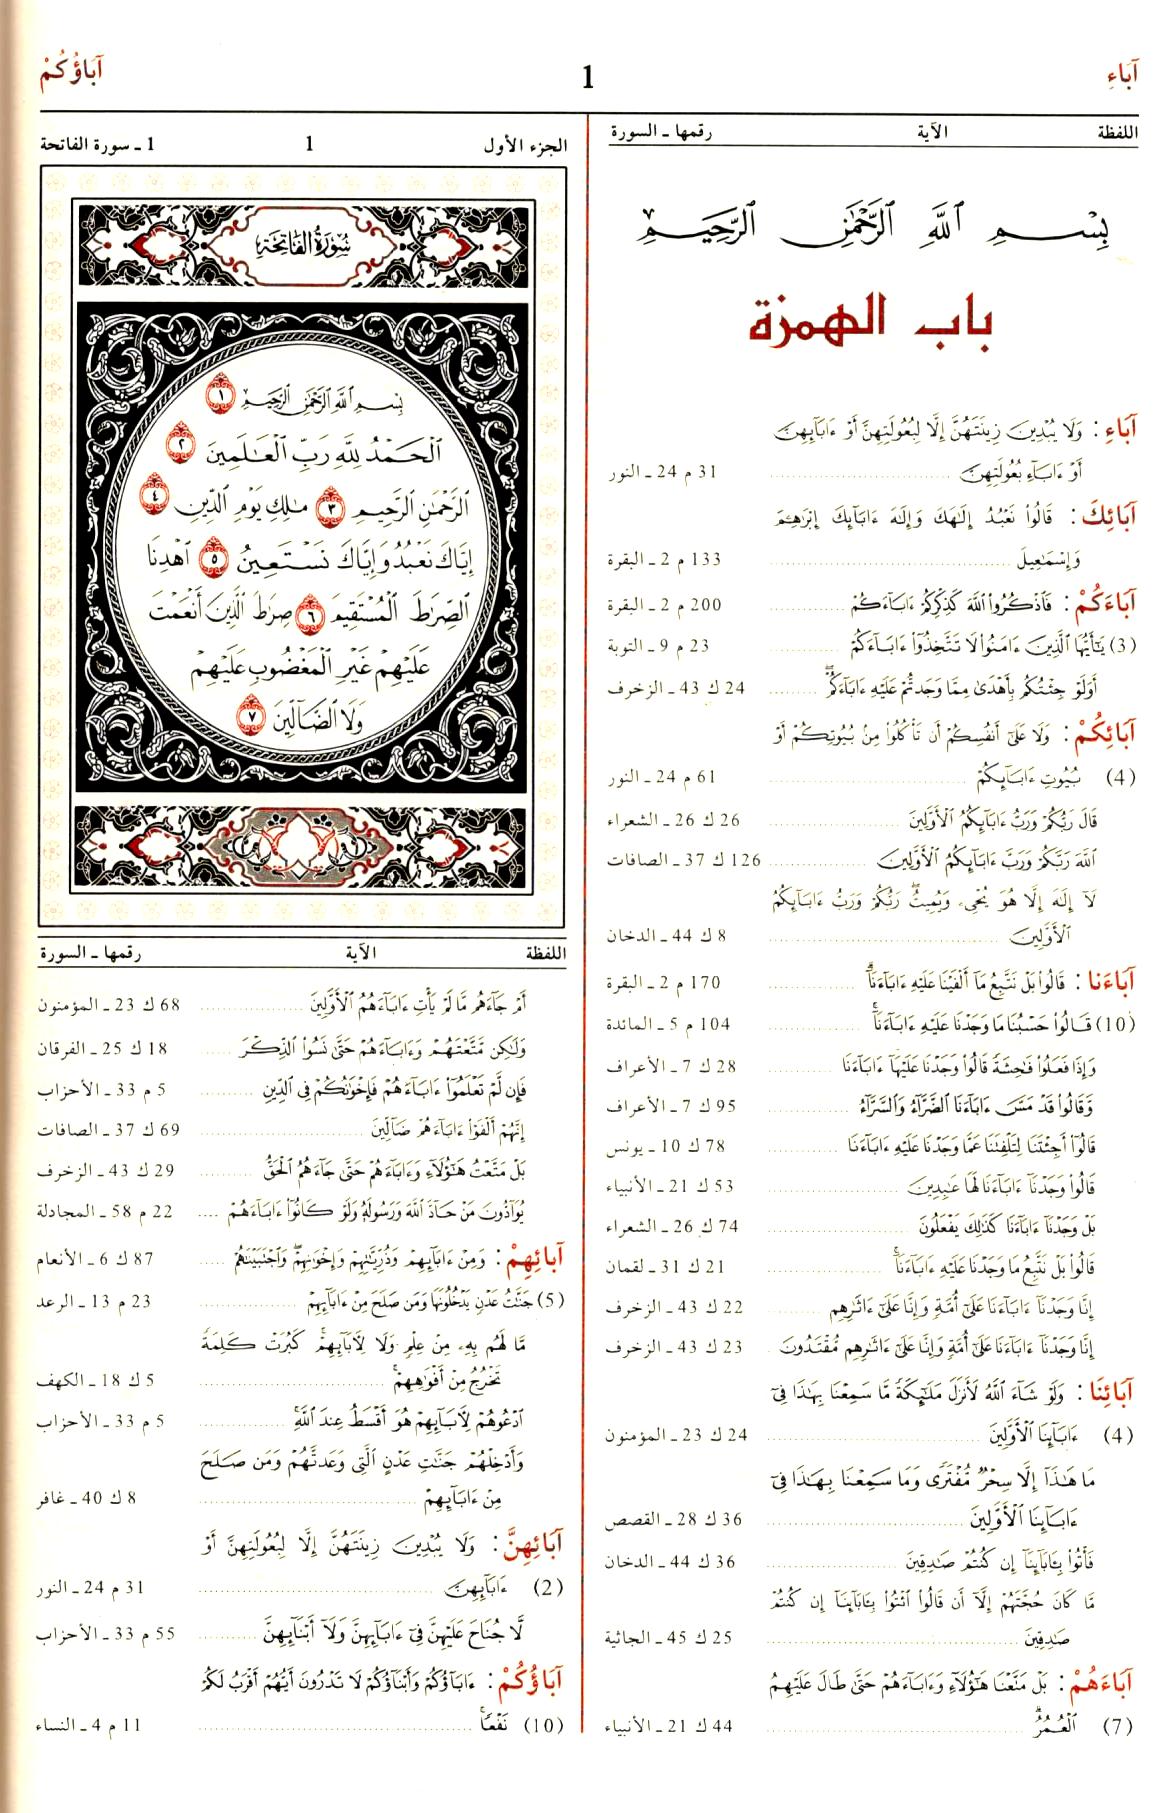 آبَاءِ
1
آبَاؤُكُمْ
اللفظة الآية رقمها ـ السورة
بِسْمِ ٱللَّهِ ٱلرَّحْمَٰنِ ٱلرَّحِيمِ
باب الهمزة
آبَاءِ : وَلَا يُبْدِينَ زِينَتَهُنَّ إِلَّا لِبُعُولَتِهِنَّ أَوْ ءَابَآئِهِنَّ
أَوْ ءَابَآءِ بُعُولَتِهِنَّ 31 م 24 ـ النور
آبَائِكَ : قَالُوا۟ نَعْبُدُ إِلَٰهَكَ وَإِلَٰهَ ءَابَآئِكَ إِبْرَٰهِـۧمَ
وَإِسْمَٰعِيلَ 133 م 2 ـ البقرة
آبَاءَكُمْ : فَٱذْكُرُوا۟ ٱللَّهَ كَذِكْرِكُمْ ءَابَآءَكُمْ 200 م 2 ـ البقرة
(3) يَٰٓأَيُّهَا ٱلَّذِينَ ءَامَنُوا۟ لَا تَتَّخِذُوٓا۟ ءَابَآءَكُمْ 23 م 9 ـ التوبة
أَوَلَوْ جِئْتُكُم بِأَهْدَىٰ مِمَّا وَجَدتُّمْ عَلَيْهِ ءَابَآءَكُمْ ۖ 24 ك 43 ـ الزخرف
آبَائِكُمْ : وَلَا عَلَىٰٓ أَنفُسِكُمْ أَن تَأْكُلُوا۟ مِنۢ بُيُوتِكُمْ أَوْ
(4) بُيُوتِ ءَابَآئِكُمْ 61 م 24 ـ النور
قَالَ رَبُّكُمْ وَرَبُّ ءَابَآئِكُمُ ٱلْأَوَّلِينَ 26 ك 26 ـ الشعراء
ٱللَّهَ رَبَّكُمْ وَرَبَّ ءَابَآئِكُمُ ٱلْأَوَّلِينَ 126 ك 37 ـ الصافات
لَآ إِلَٰهَ إِلَّا هُوَ يُحْىِۦ وَيُمِيتُ ۖ رَبُّكُمْ وَرَبُّ ءَابَآئِكُمُ
ٱلْأَوَّلِينَ 8 ك 44 ـ الدخان
آبَاءَنا : قَالُوا۟ بَلْ نَتَّبِعُ مَآ أَلْفَيْنَا عَلَيْهِ ءَابَآءَنَآ ۗ 170 م 2 ـ البقرة
(10) قَالُوا۟ حَسْبُنَا مَا وَجَدْنَا عَلَيْهِ ءَابَآءَنَآ ۚ 104 م 5 ـ المائدة
وَإِذَا فَعَلُوا۟ فَٰحِشَةً قَالُوا۟ وَجَدْنَا عَلَيْهَآ ءَابَآءَنَا 28 ك 7 ـ الأعراف
وَّقَالُوا۟ قَدْ مَسَّ ءَابَآءَنَا ٱلضَّرَّآءُ وَٱلسَّرَّآءُ 95 ك 7 ـ الأعراف
قَالُوٓا۟ أَجِئْتَنَا لِتَلْفِتَنَا عَمَّا وَجَدْنَا عَلَيْهِ ءَابَآءَنَا 78 ك 10 ـ يونس
قَالُوا۟ وَجَدْنَآ ءَابَآءَنَا لَهَا عَٰبِدِينَ 53 ك 21 ـ الأنبياء
بَلْ وَجَدْنَآ ءَابَآءَنَا كَذَٰلِكَ يَفْعَلُونَ 74 ك 26 ـ الشعراء
قَالُوا۟ بَلْ نَتَّبِعُ مَا وَجَدْنَا عَلَيْهِ ءَابَآءَنَآ ۚ 21 ك 31 ـ لقمان
إِنَّا وَجَدْنَآ ءَابَآءَنَا عَلَىٰٓ أُمَّةٍ وَإِنَّا عَلَىٰٓ ءَاثَٰرِهِم 22 ك 43 ـ الزخرف
إِنَّا وَجَدْنَآ ءَابَآءَنَا عَلَىٰٓ أُمَّةٍ وَإِنَّا عَلَىٰٓ ءَاثَٰرِهِم مُّقْتَدُونَ 23 ك 43 ـ الزخرف
آبَائِنَا : وَلَوْ شَآءَ ٱللَّهُ لَأَنزَلَ مَلَٰٓئِكَةً مَّا سَمِعْنَا بِهَٰذَا فِىٓ
(4) ءَابَآئِنَا ٱلْأَوَّلِينَ 24 ك 23 ـ المؤمنون
مَا هَٰذَآ إِلَّا سِحْرٌ مُّفْتَرًى وَمَا سَمِعْنَا بِهَٰذَا فِىٓ
ءَابَآئِنَا ٱلْأَوَّلِينَ 36 ك 28 ـ القصص
فَأْتُوا۟ بِـَٔابَآئِنَآ إِن كُنتُمْ صَٰدِقِينَ 36 ك 44 ـ الدخان
مَّا كَانَ حُجَّتَهُمْ إِلَّآ أَن قَالُوا۟ ٱئْتُوا۟ بِـَٔابَآئِنَآ إِن كُنتُمْ
صَٰدِقِينَ 25 ك 45 ـ الجاثية
آبَاءَهُمْ : بَلْ مَتَّعْنَا هَٰٓؤُلَآءِ وَءَابَآءَهُمْ حَتَّىٰ طَالَ عَلَيْهِمُ
(7) ٱلْعُمُرُ ۗ 44 ك 21 ـ الأنبياء
الجزء الأول 1 1 ـ سورة الفاتحة
سُورَةُ الفَاتِحَة
بِسْمِ ٱللَّهِ ٱلرَّحْمَٰنِ ٱلرَّحِيمِ ١
ٱلْحَمْدُ لِلَّهِ رَبِّ ٱلْعَٰلَمِينَ ٢
ٱلرَّحْمَٰنِ ٱلرَّحِيمِ ٣ مَٰلِكِ يَوْمِ ٱلدِّينِ ٤
إِيَّاكَ نَعْبُدُ وَإِيَّاكَ نَسْتَعِينُ ٥ ٱهْدِنَا
ٱلصِّرَٰطَ ٱلْمُسْتَقِيمَ ٦ صِرَٰطَ ٱلَّذِينَ أَنْعَمْتَ
عَلَيْهِمْ غَيْرِ ٱلْمَغْضُوبِ عَلَيْهِمْ
وَلَا ٱلضَّآلِّينَ ٧
اللفظة الآية رقمها ـ السورة
أَمْ جَآءَهُم مَّا لَمْ يَأْتِ ءَابَآءَهُمُ ٱلْأَوَّلِينَ 68 ك 23 ـ المؤمنون
وَلَٰكِن مَّتَّعْتَهُمْ وَءَابَآءَهُمْ حَتَّىٰ نَسُوا۟ ٱلذِّكْرَ 18 ك 25 ـ الفرقان
فَإِن لَّمْ تَعْلَمُوٓا۟ ءَابَآءَهُمْ فَإِخْوَٰنُكُمْ فِى ٱلدِّينِ 5 م 33 ـ الأحزاب
إِنَّهُمْ أَلْفَوْا۟ ءَابَآءَهُمْ ضَآلِّينَ 69 ك 37 ـ الصافات
بَلْ مَتَّعْتُ هَٰٓؤُلَآءِ وَءَابَآءَهُمْ حَتَّىٰ جَآءَهُمُ ٱلْحَقُّ 29 ك 43 ـ الزخرف
يُوَآدُّونَ مَنْ حَآدَّ ٱللَّهَ وَرَسُولَهُۥ وَلَوْ كَانُوٓا۟ ءَابَآءَهُمْ 22 م 58 ـ المجادلة
آبَائِهِمْ : وَمِنْ ءَابَآئِهِمْ وَذُرِّيَّٰتِهِمْ وَإِخْوَٰنِهِمْ ۖ وَٱجْتَبَيْنَٰهُمْ 87 ك 6 ـ الأنعام
(5) جَنَّٰتُ عَدْنٍ يَدْخُلُونَهَا وَمَن صَلَحَ مِنْ ءَابَآئِهِمْ 23 م 13 ـ الرعد
مَّا لَهُم بِهِۦ مِنْ عِلْمٍ وَلَا لِـَٔابَآئِهِمْ ۚ كَبُرَتْ كَلِمَةً
تَخْرُجُ مِنْ أَفْوَٰهِهِمْ ۚ 5 ك 18 ـ الكهف
ٱدْعُوهُمْ لِـَٔابَآئِهِمْ هُوَ أَقْسَطُ عِندَ ٱللَّهِ ۚ 5 م 33 ـ الأحزاب
وَأَدْخِلْهُمْ جَنَّٰتِ عَدْنٍ ٱلَّتِى وَعَدتَّهُمْ وَمَن صَلَحَ
مِنْ ءَابَآئِهِمْ 8 ك 40 ـ غافر
آبَائِهِنَّ : وَلَا يُبْدِينَ زِينَتَهُنَّ إِلَّا لِبُعُولَتِهِنَّ أَوْ
(2) ءَابَآئِهِنَّ 31 م 24 ـ النور
لَّا جُنَاحَ عَلَيْهِنَّ فِىٓ ءَابَآئِهِنَّ وَلَآ أَبْنَآئِهِنَّ 55 م 33 ـ الأحزاب
آبَاؤُكُمْ : ءَابَآؤُكُمْ وَأَبْنَآؤُكُمْ لَا تَدْرُونَ أَيُّهُمْ أَقْرَبُ لَكُمْ
(10) نَفْعًا ۚ 11 م 4 ـ النساء